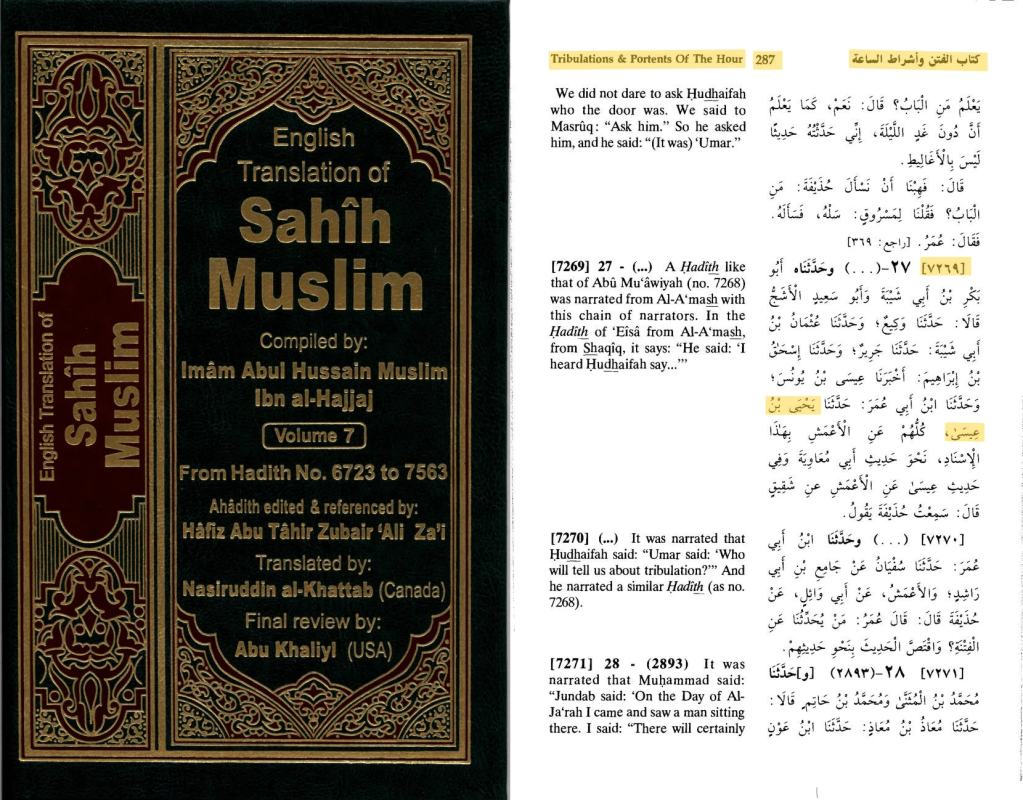 English Translation of
Sahîh
Muslim
English
Translation of
Sahîh
Muslim
Compiled by:
Imâm Abul Hussain Muslim
Ibn al-Hajjaj
Volume 7
From Hadith No. 6723 to 7563
Ahâdith edited & referenced by:
Hâfiz Abu Tâhir Zubair 'Ali Za'i
Translated by:
Nasiruddin al-Khattab (Canada)
Final review by:
Abu Khaliyl (USA)
Tribulations & Portents Of The Hour 287 كتاب الفتن وأشراط الساعة
We did not dare to ask Ḥudhaifah
who the door was. We said to
Masrûq: “Ask him.” So he asked
him, and he said: “(It was) ‘Umar.”
[7269] 27 - (...) A Ḥadîth like
that of Abû Mu‘âwiyah (no. 7268)
was narrated from Al-A‘mash with
this chain of narrators. In the
Ḥadîth of ‘Eîsâ from Al-A‘mash,
from Shaqîq, it says: “He said: ‘I
heard Ḥudhaifah say...’”
[7270] (...) It was narrated that
Ḥudhaifah said: “Umar said: ‘Who
will tell us about tribulation?’” And
he narrated a similar Ḥadîth (as no.
7268).
[7271] 28 - (2893) It was
narrated that Muḥammad said:
“Jundab said: ‘On the Day of Al-
Ja‘rah I came and saw a man sitting
there. I said: “There will certainly
يَعْلَمُ مَنِ الْبَابُ؟ قَالَ: نَعَمْ، كَمَا يَعْلَمُ
أَنَّ دُونَ غَدٍ اللَّيْلَةَ، إِنِّي حَدَّثْتُهُ حَدِيثًا
لَيْسَ بِالْأَغَالِيطِ.
قَالَ: فَهِبْنَا أَنْ نَسْأَلَ حُذَيْفَةَ: مَنِ
الْبَابُ؟ فَقُلْنَا لِمَسْرُوقٍ: سَلْهُ، فَسَأَلَهُ.
فَقَالَ: عُمَرُ. [راجع: ٣٦٩]
[٧٢٦٩] ٢٧-(...) وحَدَّثَنَاه أَبُو
بَكْرِ بْنُ أَبِي شَيْبَةَ وَأَبُو سَعِيدٍ الْأَشَجُّ
قَالَا: حَدَّثَنَا وَكِيعٌ؛ وَحَدَّثَنَا عُثْمَانُ بْنُ
أَبِي شَيْبَةَ: حَدَّثَنَا جَرِيرٌ؛ وَحَدَّثَنَا إِسْحٰقُ
بْنُ إِبْرَاهِيمَ: أَخْبَرَنَا عِيسَى بْنُ يُونُسَ؛
وَحَدَّثَنَا ابْنُ أَبِي عُمَرَ: حَدَّثَنَا يَحْيَى بْنُ
عِيسَىٰ، كُلُّهُمْ عَنِ الْأَعْمَشِ بِهٰذَا
الْإِسْنَادِ، نَحْوَ حَدِيثِ أَبِي مُعَاوِيَةَ وَفِي
حَدِيثِ عِيسَىٰ عَنِ الْأَعْمَشِ عن شَقِيقٍ
قَالَ: سَمِعْتُ حُذَيْفَةَ يَقُولُ.
[٧٢٧٠] (...) وحَدَّثَنَا ابْنُ أَبِي
عُمَرَ: حَدَّثَنَا سُفْيَانُ عَنْ جَامِعِ بْنِ أَبِي
رَاشِدٍ؛ وَالْأَعْمَشُ، عَنْ أَبِي وَائِلٍ، عَنْ
حُذَيْفَةَ قَالَ: قَالَ عُمَرُ: مَنْ يُحَدِّثُنَا عَنِ
الْفِتْنَةِ؟ وَاقْتَصَّ الْحَدِيثَ بِنَحْوِ حَدِيثِهِمْ.
[٧٢٧١] ٢٨-(٢٨٩٣) [و]حَدَّثَنَا
مُحَمَّدُ بْنُ الْمُثَنَّى وَمُحَمَّدُ بْنُ حَاتِمٍ قَالَا:
حَدَّثَنَا مُعَاذُ بْنُ مُعَاذٍ: حَدَّثَنَا ابْنُ عَوْنٍ